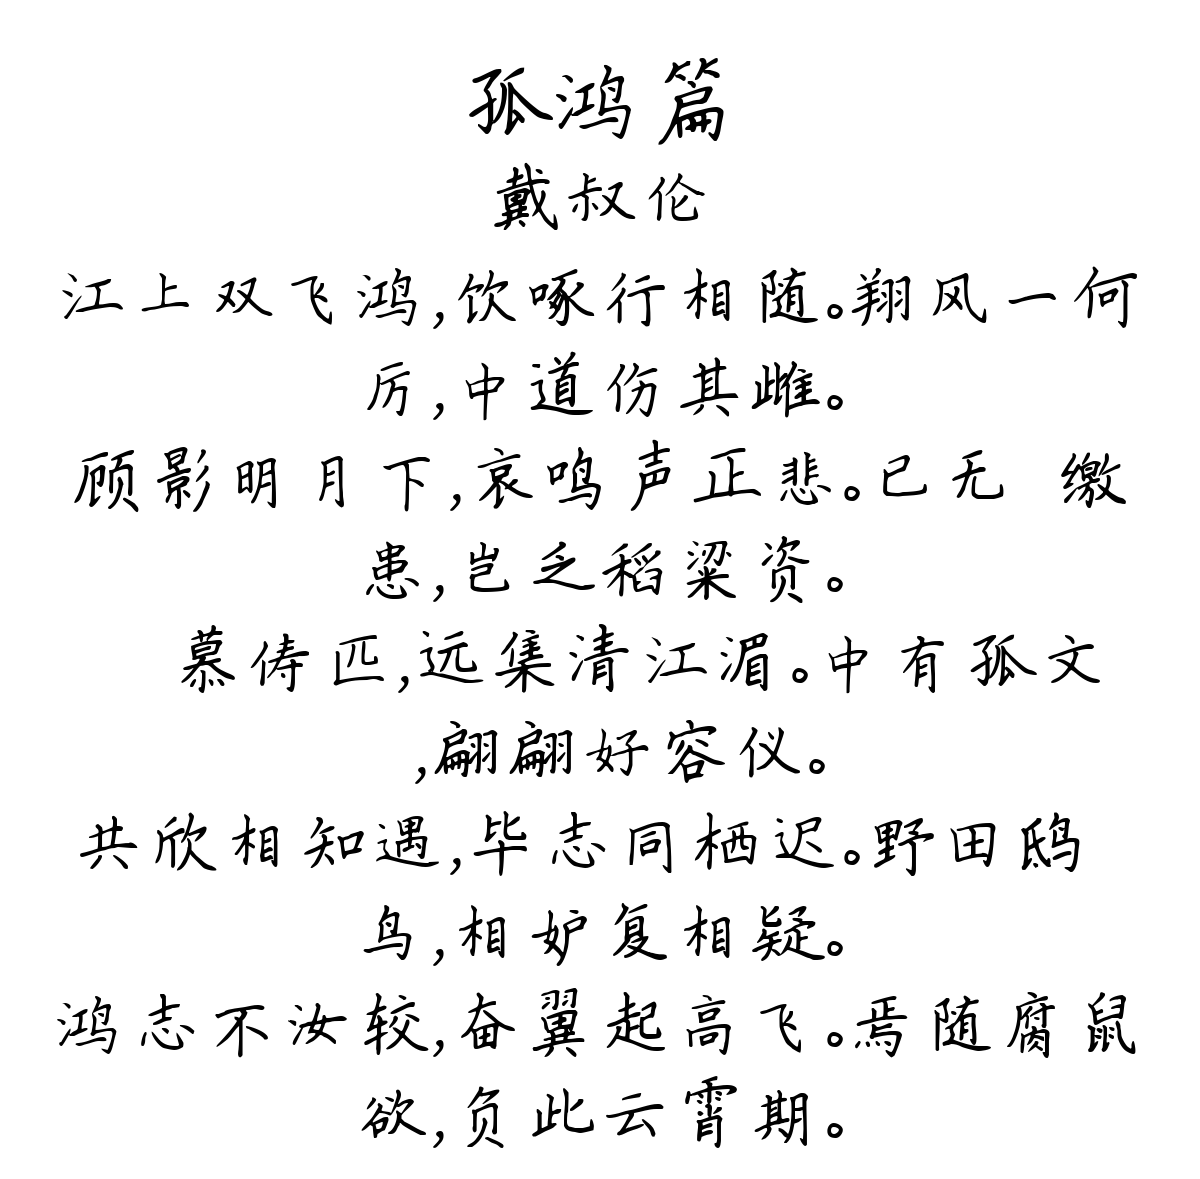 孤鸿篇
戴叔伦
江上双飞鸿,饮啄行相随。翔风一何
厉,中道伤其雌。
顾影明月下,哀鸣声正悲。已无 缴
患,岂乏稻粱资。
慕俦匹,远集清江湄。中有孤文
,翩翩好容仪。
共欣相知遇,毕志同栖迟。野田鸱
鸟,相妒复相疑。
鸿志不汝较,奋翼起高飞。焉随腐鼠
欲,负此云霄期。